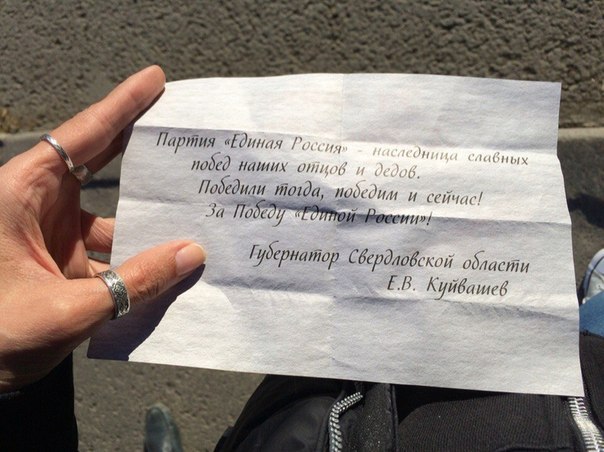 Партия «Единая Россия» - наследница славных
побед наших отцов и дедов.
Победили тогда, победим и сейчас!
За Победу «Единой России»!
Губернатор Свердловской области
Е.В. Куйвашев